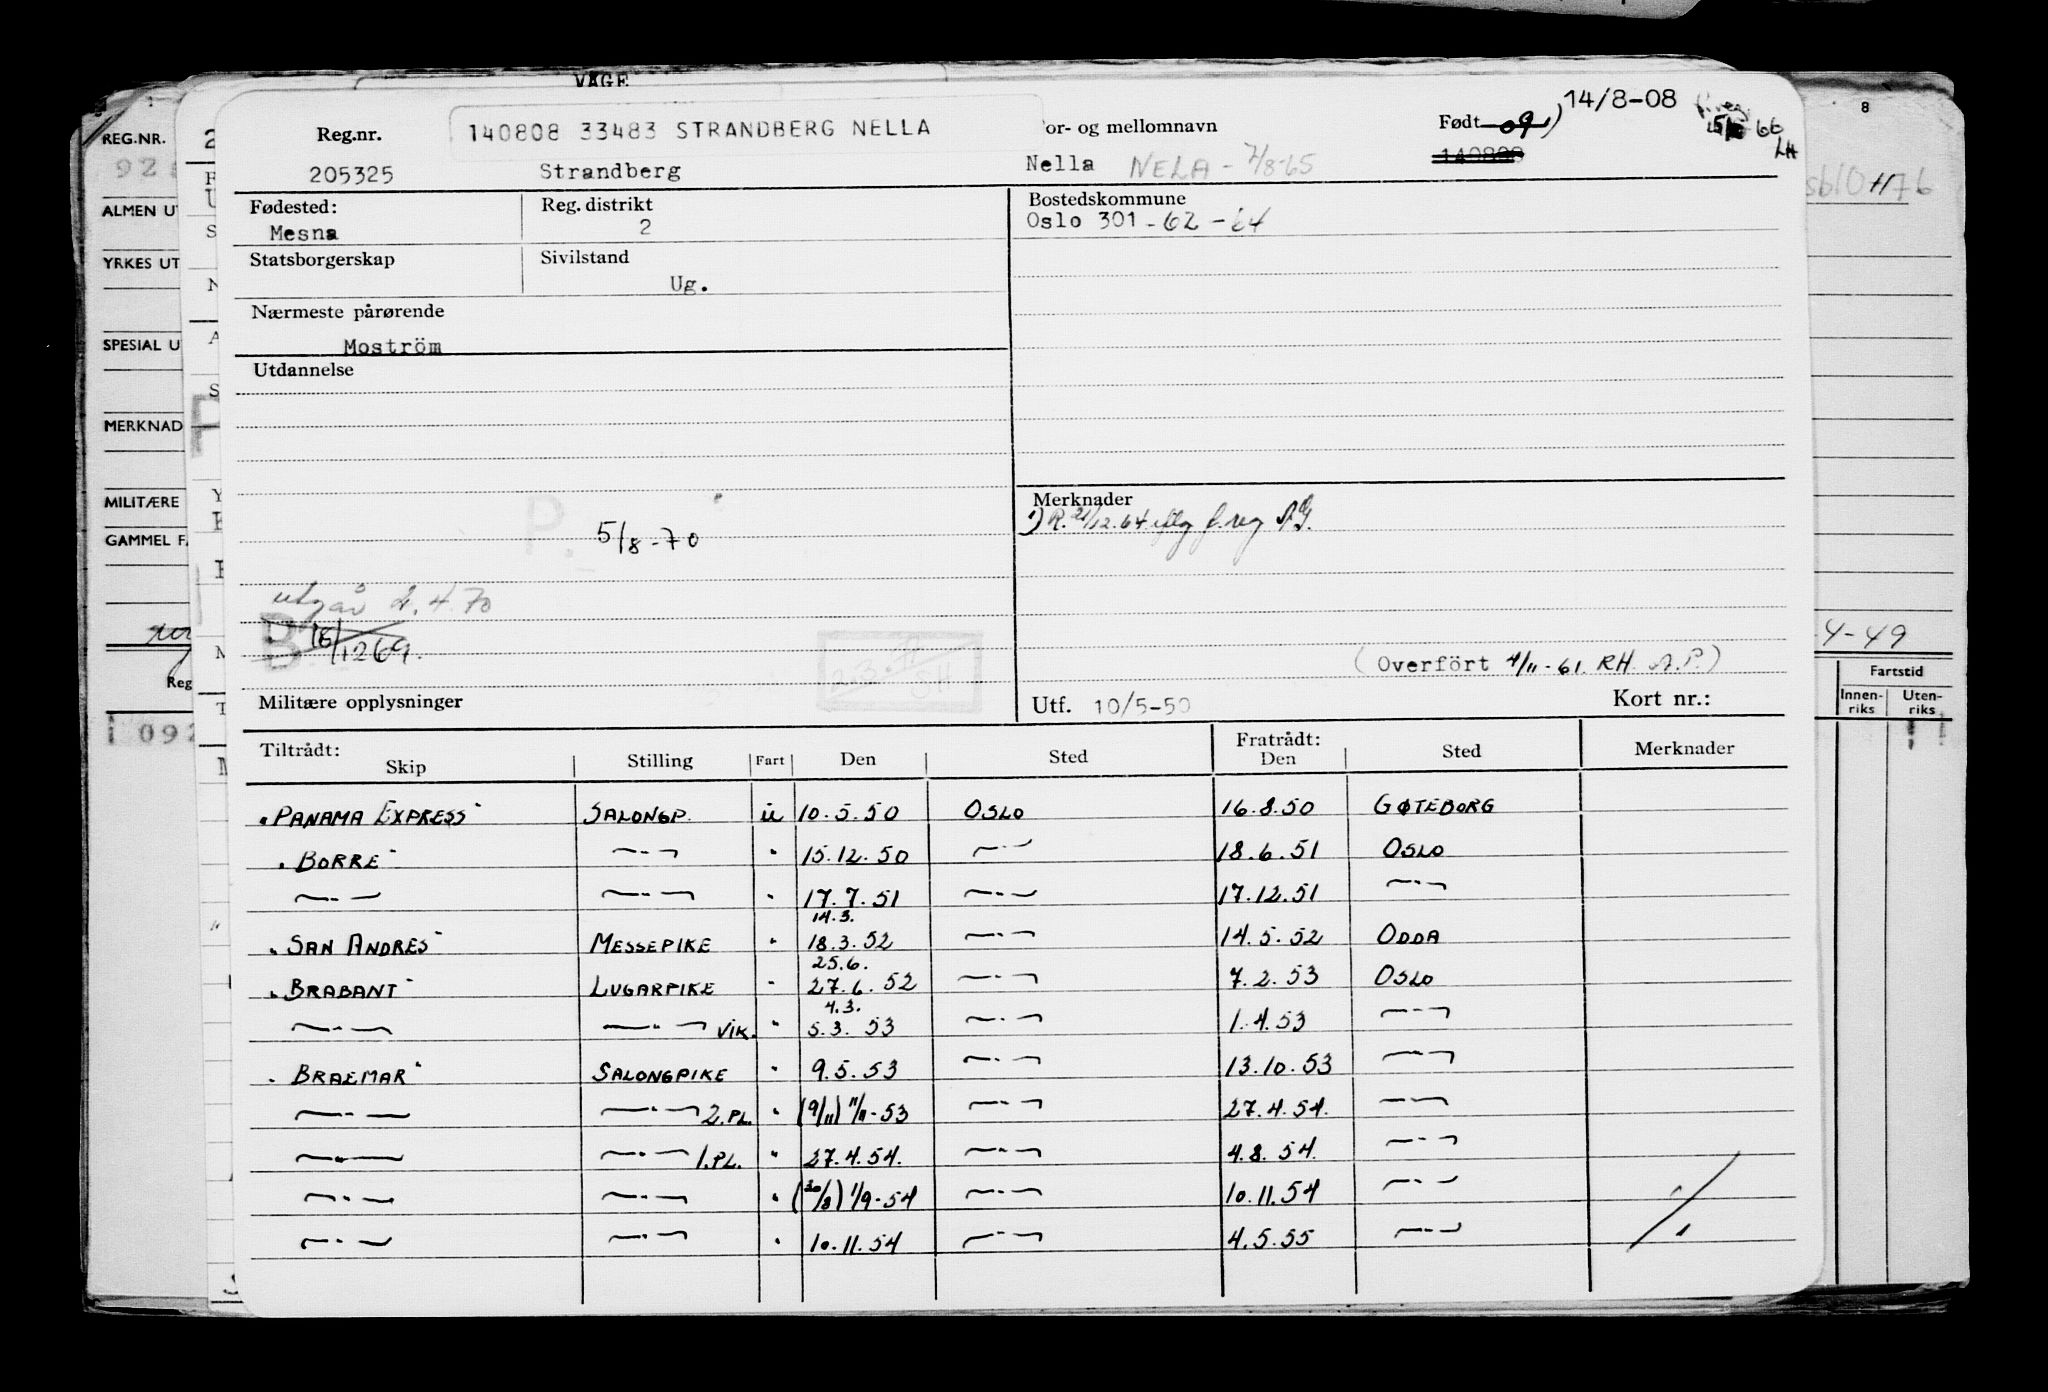 VÅGE
8
REG.NR.
Reg.nr. 140808 33483 STRANDBERG NELLA or- og mellomnavn Født 09 1) 14/8-08
205325 Strandberg Nella NELA - 7/8-65
ALMEN UT
Fødested: Reg. distrikt Bostedskommune
Mesna 2 Oslo 301 - 62 - 64
YRKES UT
Statsborgerskap Sivilstand
Ug.
Nærmeste pårørende
SPESIAL U
Moström
Utdannelse
MERKNAD
MILITÆRE
Merknader
1) R. 21/12.64 iflg f. reg
GAMMEL F
P. 5/8-70
utgår 2.4.70
B 16/1269.
4-49
(Overfört 4/11-61. RH. A.P.)
Fartstid
Innen-riks Uten-riks
Militære opplysninger Utf. 10/5-50 Kort nr.:
Tiltrådt: Skip Stilling Fart Den Sted Fratrådt: Den Sted Merknader
"PANAMA EXPRESS" SALONGP. u 10.5.50 OSLO 16.8.50 GØTEBORG
"BORRE" —"— " 15.12.50 —"— 18.6.51 OSLO
—"— —"— " 17.7.51 —"— 17.12.51 —"—
14.3.
"SAN ANDRES" MESSEPIKE " 18.3.52 —"— 14.5.52 ODDA
25.6.
"BRABANT" LUGARPIKE " 27.6.52 —"— 7.2.53 OSLO
4.3.
—"— —"— VIK. " 5.3.53 —"— 1.4.53 —"—
"BRAEMAR" SALONGPIKE " 9.5.53 —"— 13.10.53 —"—
—"— —"— 2.PL. " (9/11) 11/11-53 —"— 27.4.54. —"—
—"— —"— 1.PL. " 27.4.54. —"— 4.8.54. —"—
—"— —"— " (30/8) 1/9-54 —"— 10.11.54 —"—
—"— —"— " 10.11.54 —"— 4.5.55 —"—